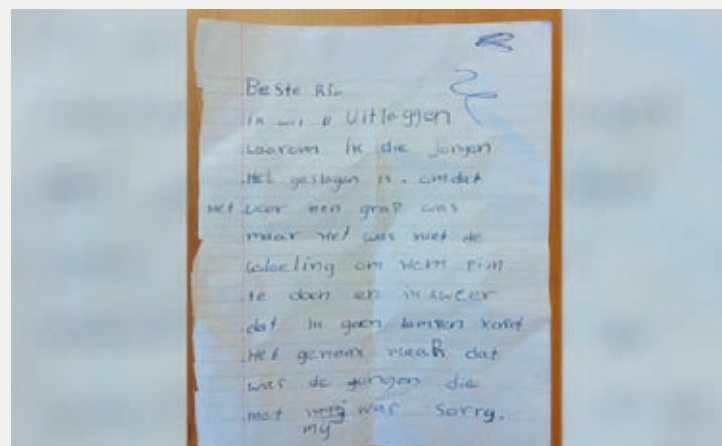 Beste Ri
ik wil u Uitleggen
waarom ik die jongen
Het geslagen is. omdat
Het voor een grap was
maar Het was niet de
bdoeling om Hem pijn
te doen en ik sweer
dat ik geen komt
Het genaar maar dat
was de gongen die
mot was sorry.
my